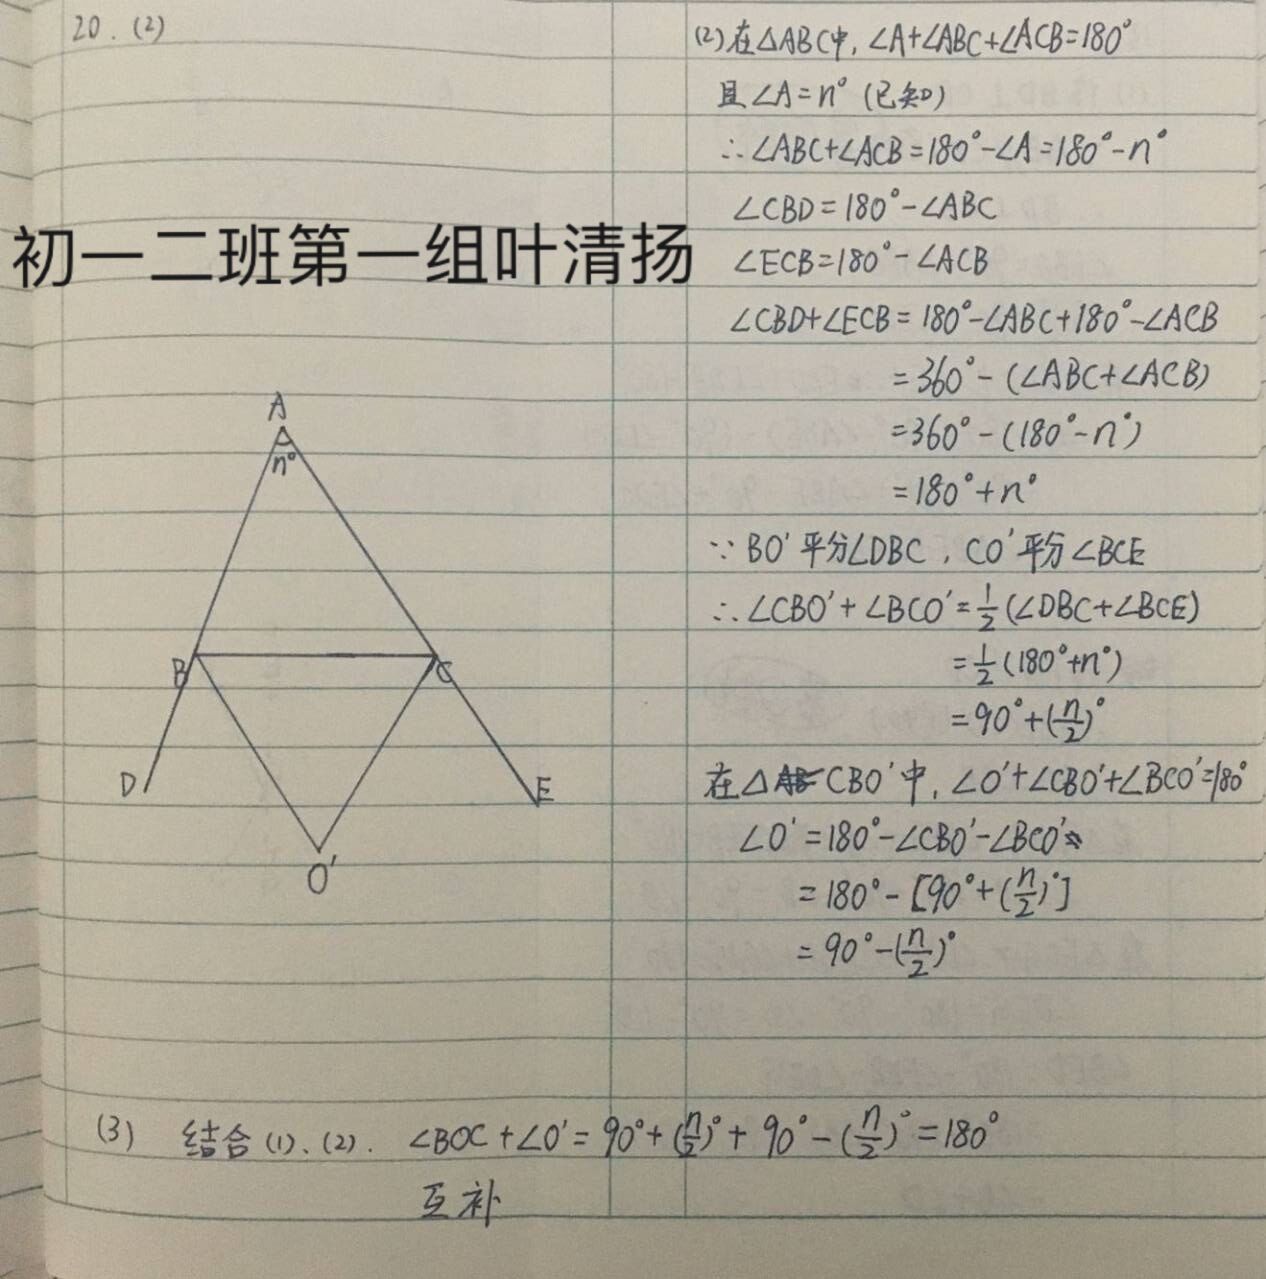 20. (2)
初一二班第一组叶清扬
A
n°
B
C
D
E
O'
(2)在△ABC中, ∠A+∠ABC+∠ACB=180°
且∠A=n° (已知)
∴∠ABC+∠ACB=180°-∠A=180°-n°
∠CBD=180°-∠ABC
∠ECB=180°-∠ACB
∠CBD+∠ECB=180°-∠ABC+180°-∠ACB
=360°-(∠ABC+∠ACB)
=360°-(180°-n°)
=180°+n°
∵BO'平分∠DBC, CO'平分∠BCE
∴∠CBO'+∠BCO'=1/2(∠DBC+∠BCE)
=1/2(180°+n°)
=90°+(n/2)°
在△CBO'中, ∠O'+∠CBO'+∠BCO'=180°
∠O'=180°-∠CBO'-∠BCO'
=180°-[90°+(n/2)°]
=90°-(n/2)°
(3) 结合(1)、(2). ∠BOC+∠O'=90°+(n/2)°+90°-(n/2)°=180°
互补